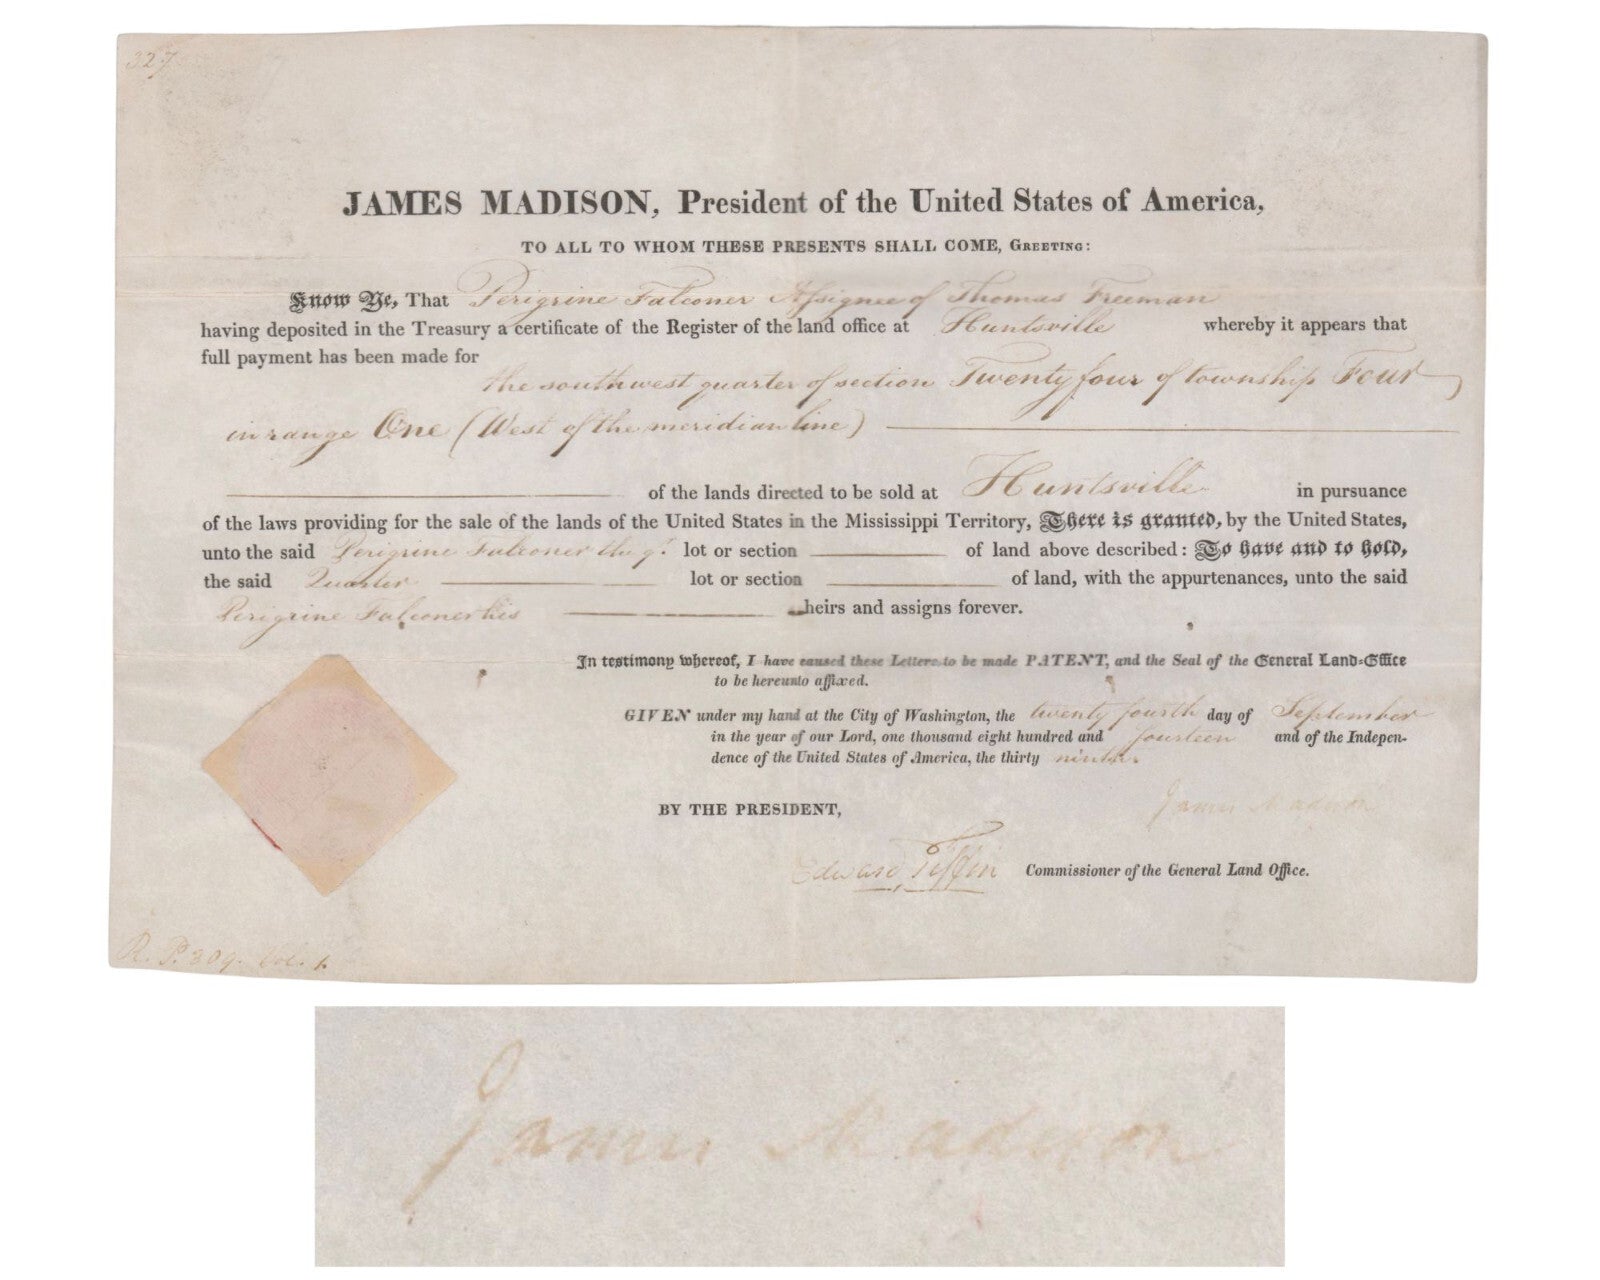 327
JAMES MADISON, President of the United States of America,
TO ALL TO WHOM THESE PRESENTS SHALL COME, GREETING:
Know Ye, That Perigrine Falconer Assignee of Thomas Freeman
having deposited in the Treasury a certificate of the Register of the land office at Huntsville whereby it appears that
full payment has been made for
the southwest quarter of section Twenty four of township Four
in range One (West of the meridian line)
of the lands directed to be sold at Huntsville in pursuance
of the laws providing for the sale of the lands of the United States in the Mississippi Territory, There is granted, by the United States,
unto the said Perigrine Falconer the qr. lot or section of land above described: To have and to hold,
the said Quarter lot or section of land, with the appurtenances, unto the said
Perigrine Falconer his heirs and assigns forever.
In testimony whereof, I have caused these Letters to be made PATENT, and the Seal of the General Land-Office
to be hereunto affixed.
GIVEN under my hand at the City of Washington, the twenty fourth day of September
in the year of our Lord, one thousand eight hundred and fourteen and of the Indepen-
dence of the United States of America, the thirty ninth.
James Madison
BY THE PRESIDENT,
Edward Tiffin Commissioner of the General Land Office.
R. P. 309. Vol. 1.
James Madison